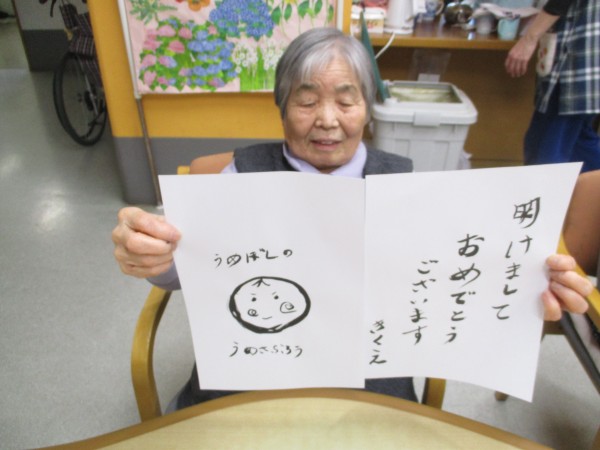 うめぼしの
うめさぶろう
明けまして
おめでとう
ございます
きくえ